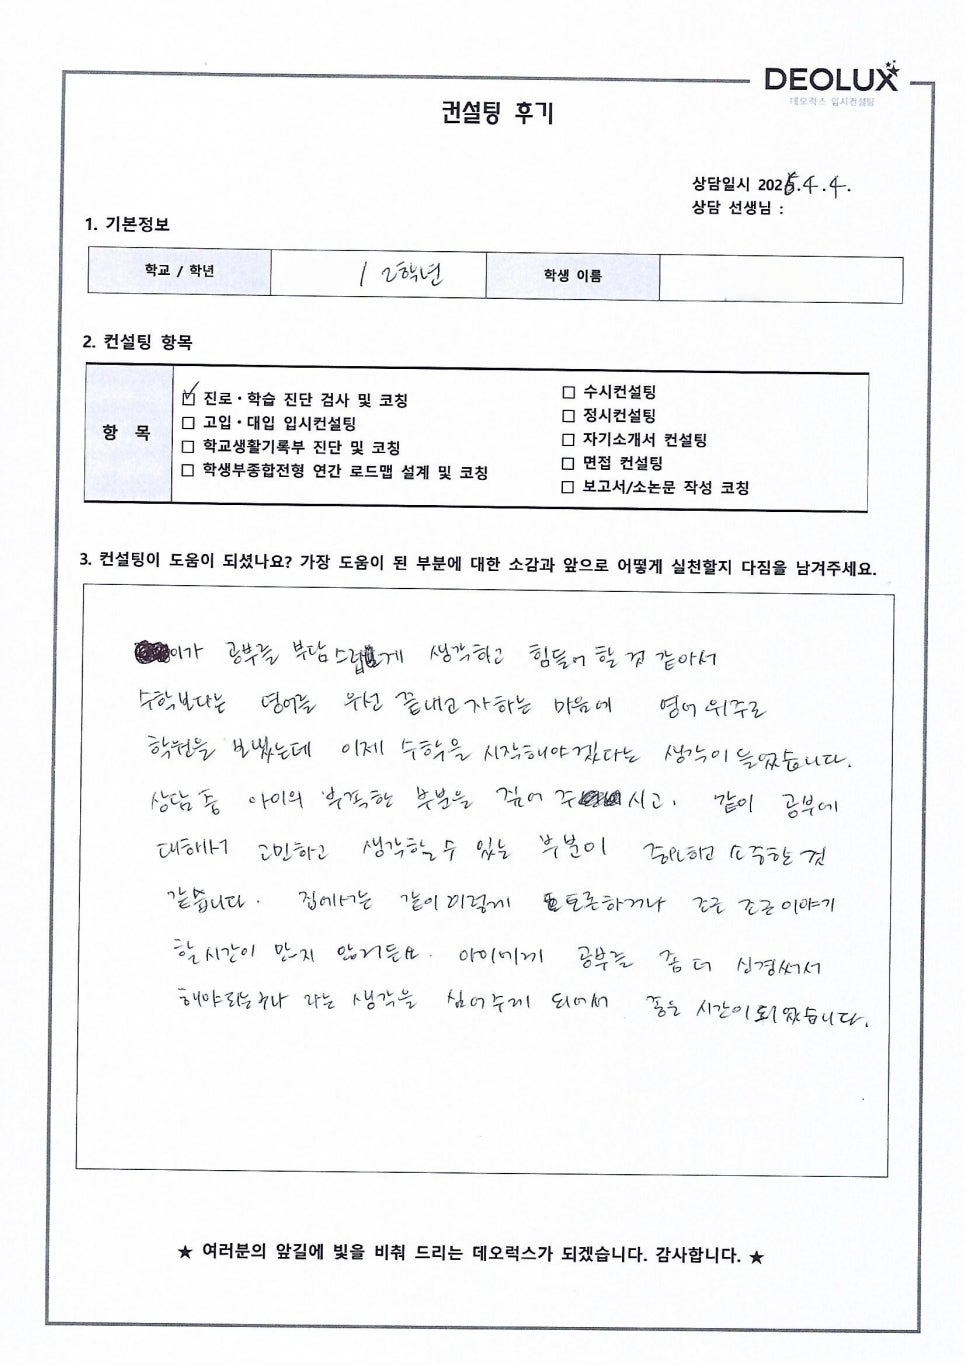 DEOLUX
데오럭스 입시컨설팅
컨설팅 후기
상담일시 2025.4.4.
상담 선생님 :
1. 기본정보
학교 / 학년 / 2학년 학생 이름
2. 컨설팅 항목
항 목
☑ 진로・학습 진단 검사 및 코칭
☐ 고입・대입 입시컨설팅
☐ 학교생활기록부 진단 및 코칭
☐ 학생부종합전형 연간 로드맵 설계 및 코칭
☐ 수시컨설팅
☐ 정시컨설팅
☐ 자기소개서 컨설팅
☐ 면접 컨설팅
☐ 보고서/소논문 작성 코칭
3. 컨설팅이 도움이 되셨나요? 가장 도움이 된 부분에 대한 소감과 앞으로 어떻게 실천할지 다짐을 남겨주세요.
이가 공부를 부담스럽게 생각하고 힘들어 할 것 같아서
수학보다는 영어를 우선 끝내고자하는 마음에 영어 위주로
학원을 보냈는데 이제 수학을 시작해야겠다는 생각이 들었습니다.
상담 중 아이의 부족한 부분을 짚어 주시고, 같이 공부에
대해서 고민하고 생각할 수 있는 부분이 중요하고 소중한 것
같습니다. 집에서는 같이 이렇게 토론하거나 조근 조근 이야기
할 시간이 많지 않거든요. 아이에게 공부를 좀 더 신경써서
해야 되는구나 라는 생각을 심어주게 되어서 좋은 시간이 되었습니다.
★ 여러분의 앞길에 빛을 비춰 드리는 데오럭스가 되겠습니다. 감사합니다. ★